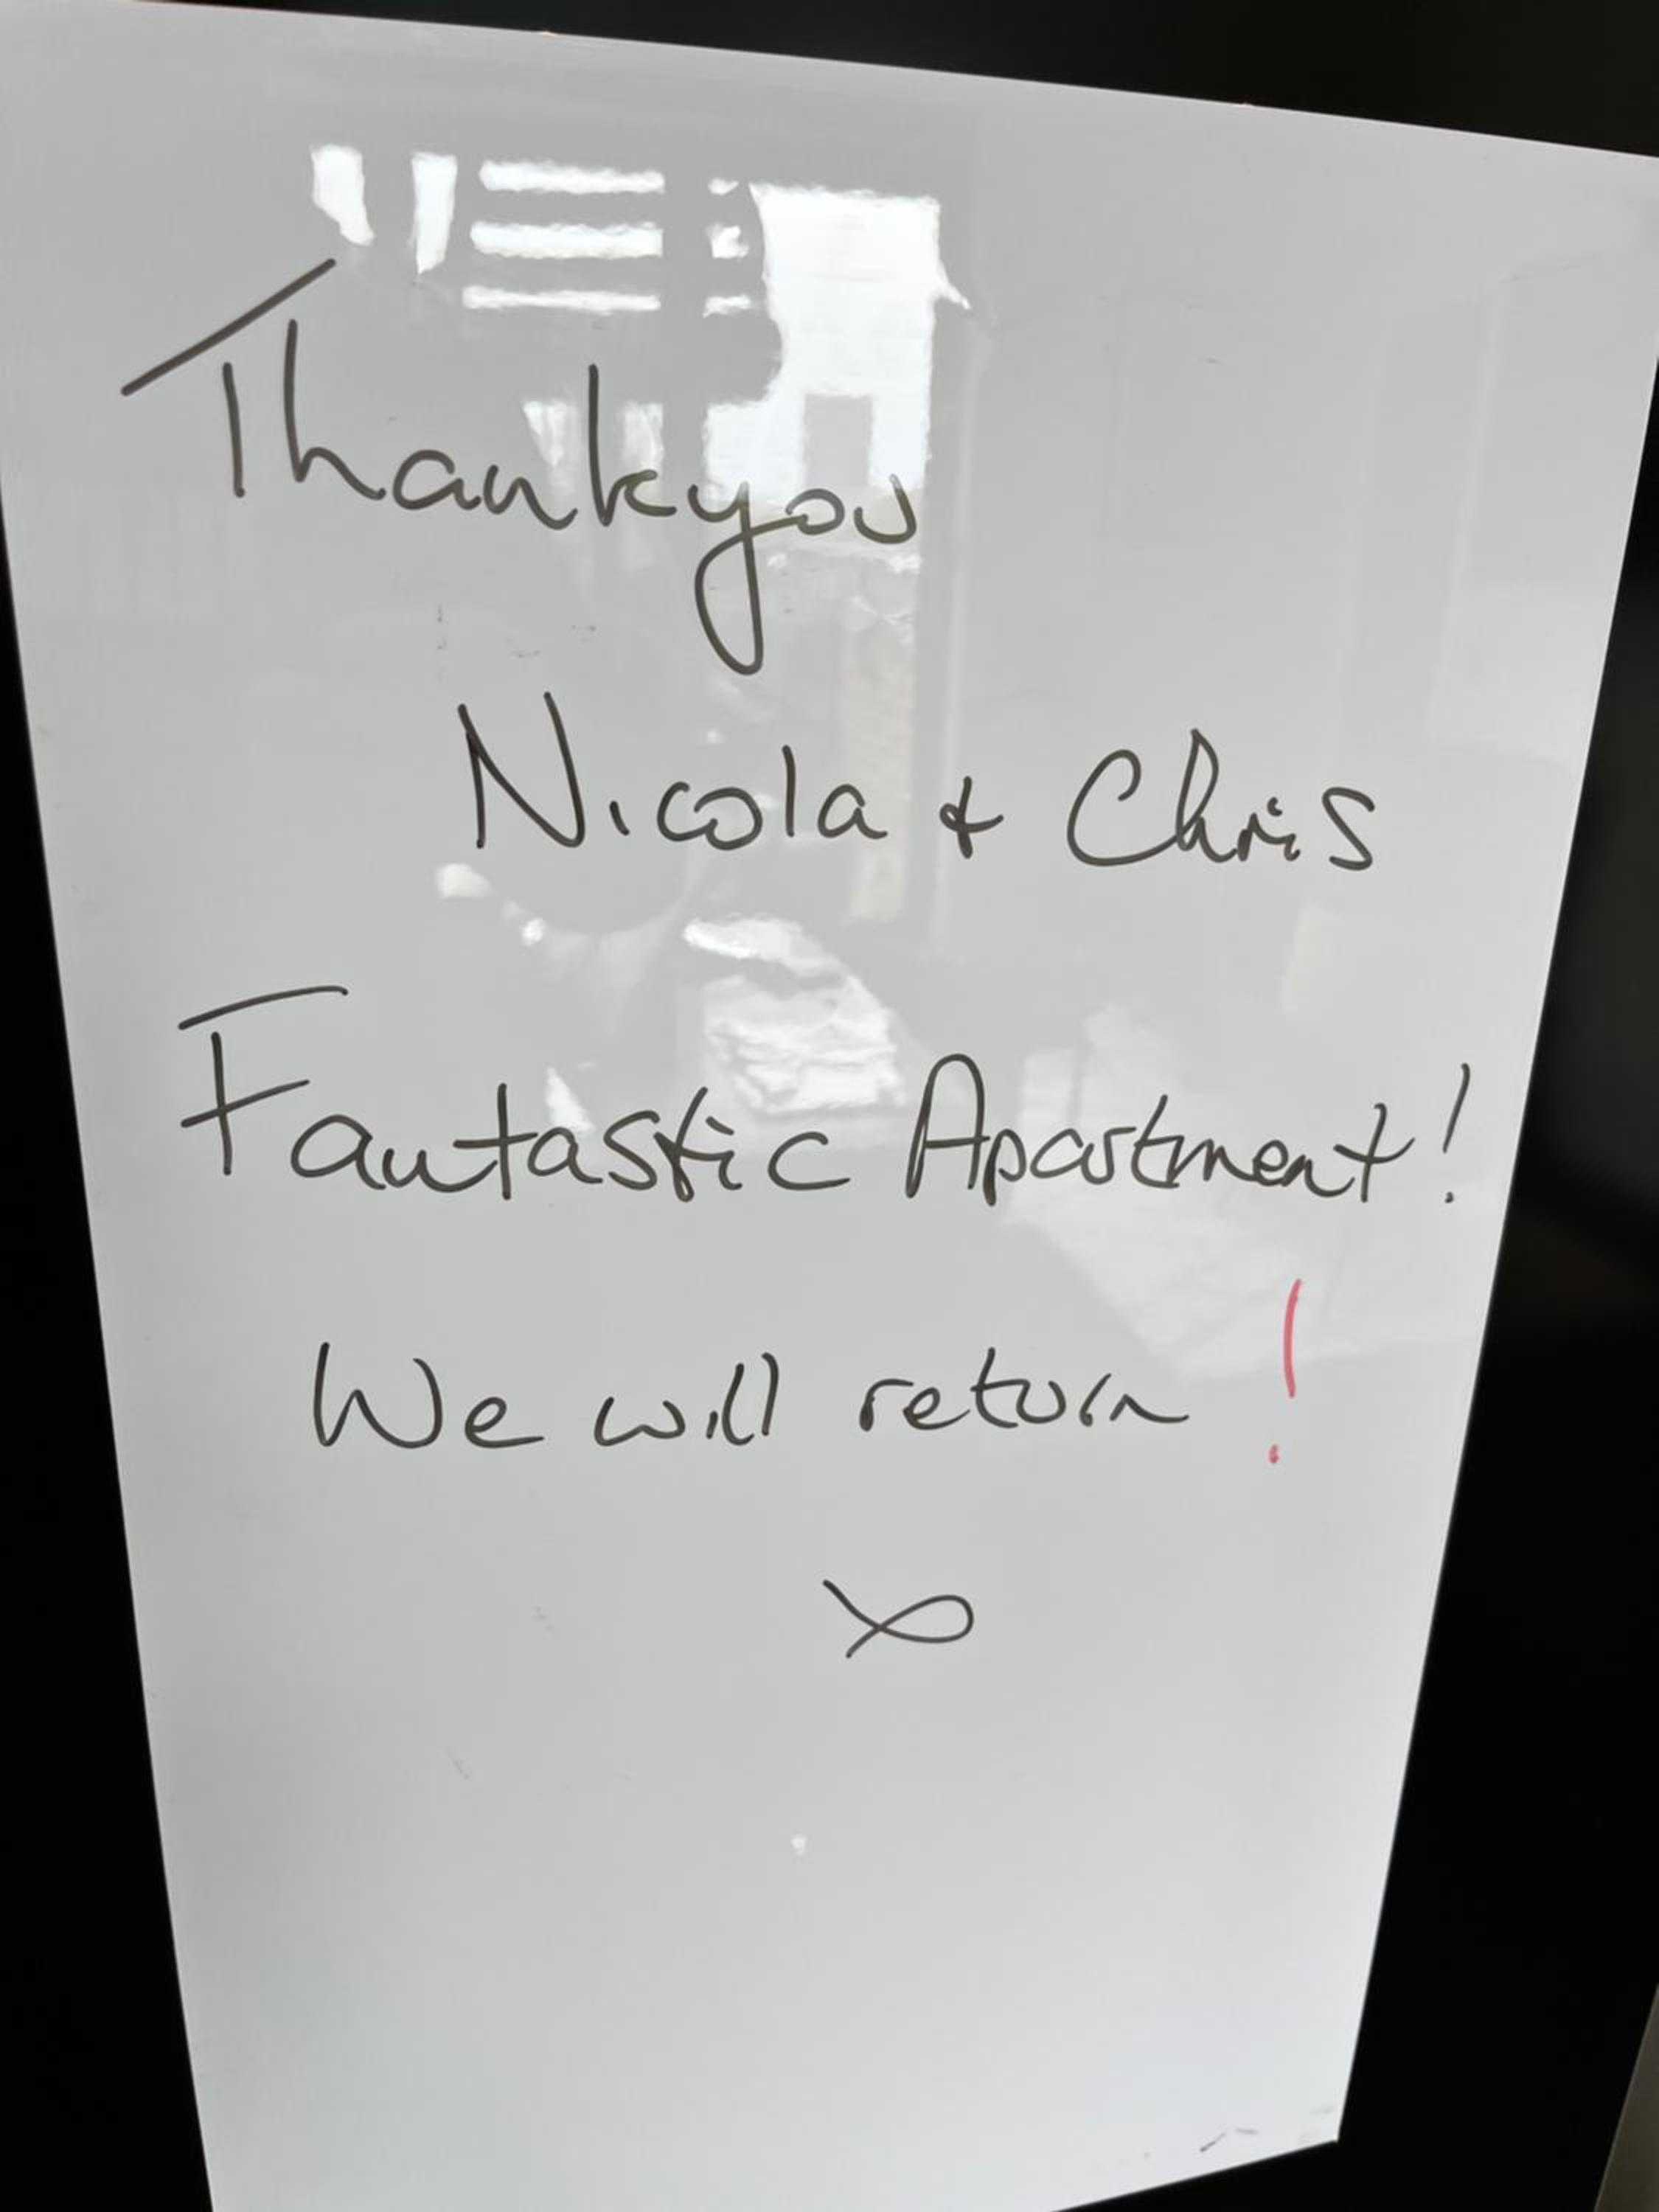 Thankyou
Nicola & Chris
Fantastic Apartment!
We will return!
x